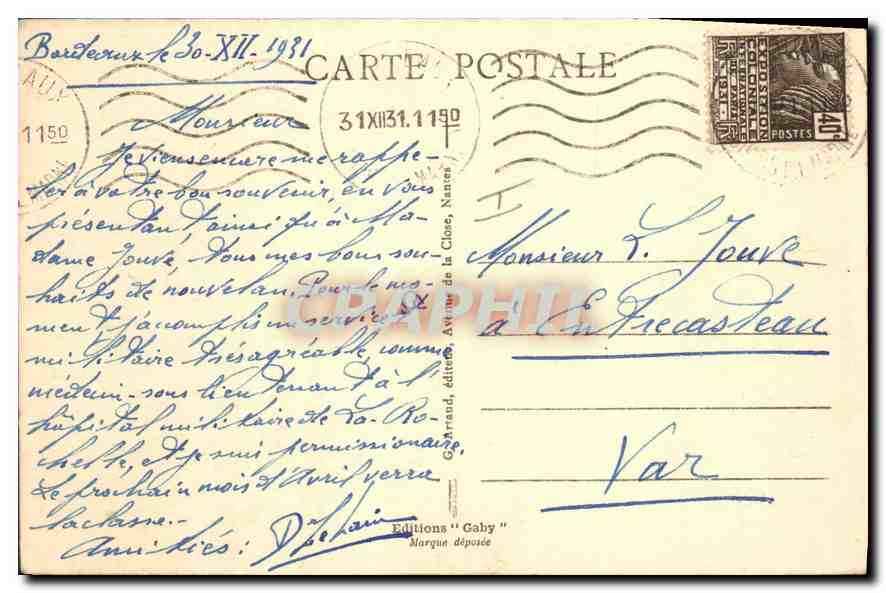 Bordeaux le 30-XII-1931
CARTE POSTALE
AUX
11 50
31 XII 31. 11 50
EXPOSITION
COLONIALE
INTERNATIONALE
PARIS 1931
POSTES
40c
Monsieur
Je viens encore me rappe-
ler à votre bon souvenir, en vous
présentant, ainsi qu'à Ma-
dame Jouve, tous mes bons sou-
haits de nouvel an. Pour le mo-
ment, j'accomplis un service
militaire très agréable, comme
médecin-sous lieutenant à l'
hôpital militaire de La-Ro-
chelle, et je suis permissionnaire.
Le prochain mois d'Avril verra
la classe.-
Amitiés :
Monsieur L. Jouve
à Entrecasteau
Var
G. Artaud, éditeur, Avenue de la Close, Nantes
Editions "Gaby"
Marque déposée
CPAPHIL